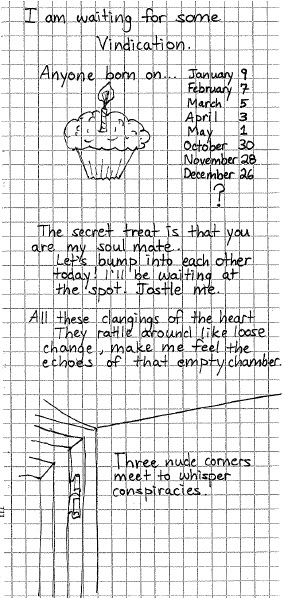 I am waiting for some
Vindication.
Anyone born on...
January 9
February 7
March 5
April 3
May 1
October 30
November 28
December 26
?
The secret treat is that you
are my soul mate..
Let's bump into each other
today! I'll be waiting at
the spot. Jostle me.
All these clangings of the heart
They rattle around like loose
change, make me feel the
echoes of that empty chamber.
Three nude corners
meet to whisper
conspiracies.